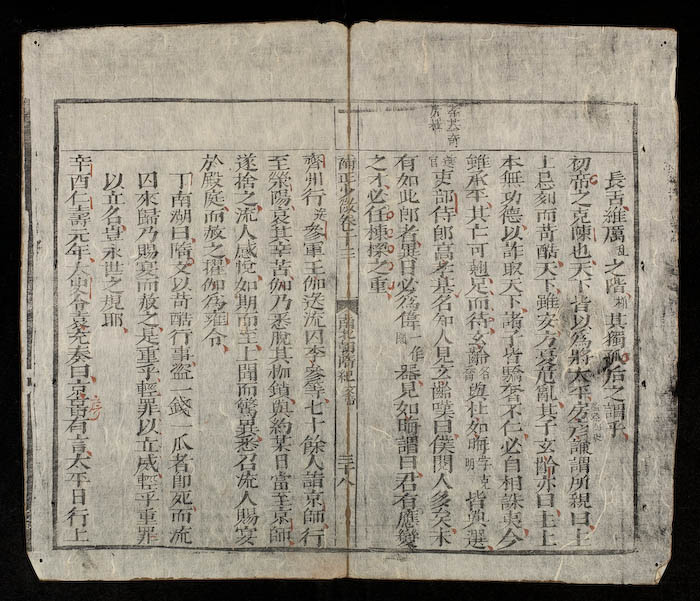 長舌維厲亂之階其獨孤后之謂乎
初帝之克陳也天下皆以為將太平房彦謙謂所親曰主
上忌刻而苛酷天下雖安方憂危亂其子玄齡亦曰主上
本無功德以詐取天下諸子皆驕奢不仁必自相誅夷今
雖承平其亡可翹足而待玄齡名喬與杜如晦字克明皆預選
選官吏部侍郎高孝基名知人見玄齡嘆曰僕閱人多矣未
有如此郎者異日必為偉一作國器見如晦謂曰君有應變
之才必任棟樑之重
卷十三 南北朝隋紀文帝 三十八
齊州行參軍王伽送流囚李參等七十餘人詣京師行
至滎陽哀其辛苦伽乃悉脫其枷鎖與約某日當至京師
遂捨之流人感悅如期而至上聞而驚異悉召流人賜宴
於殿庭而赦之擢伽為雍令
丁南湖曰隋文以苛酷行事盜一錢一瓜者即死而流
囚來歸乃賜宴而赦之是重乎輕罪以立威輕乎重罪
以立名豈永世之規耶
辛酉仁壽元年太史令袁充奏曰京房有言太平日行上